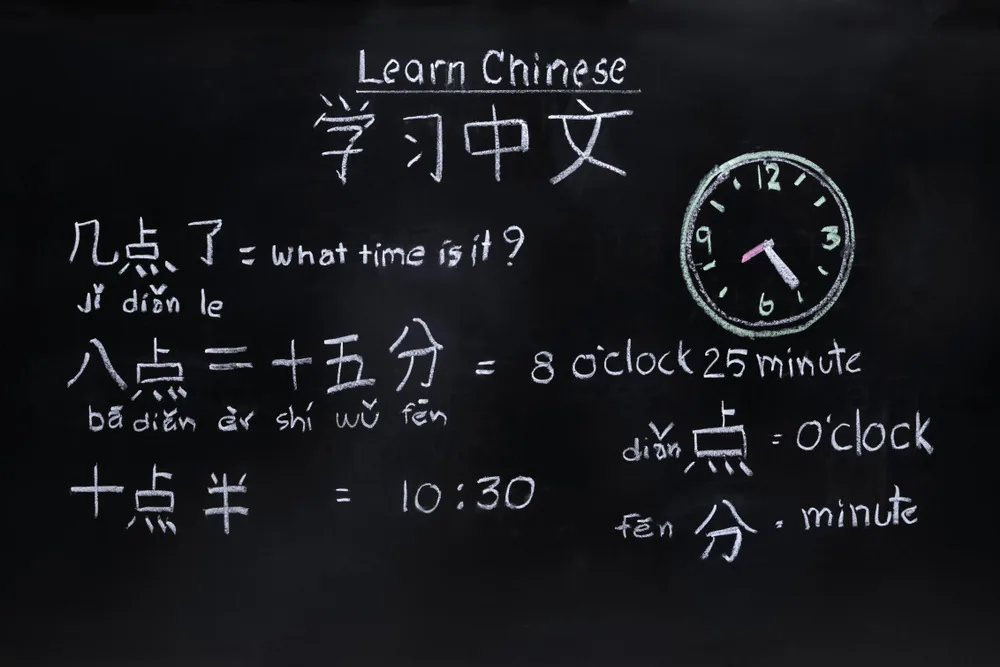 Learn Chinese
学习中文
12
3
6
9
几点了 = what time is it?
jǐ diǎn le
八点二十五分 = 8 o'clock 25 minute
bā diǎn èr shí wǔ fēn
diǎn 点 = o'clock
十点半 = 10:30
fēn 分 = minute